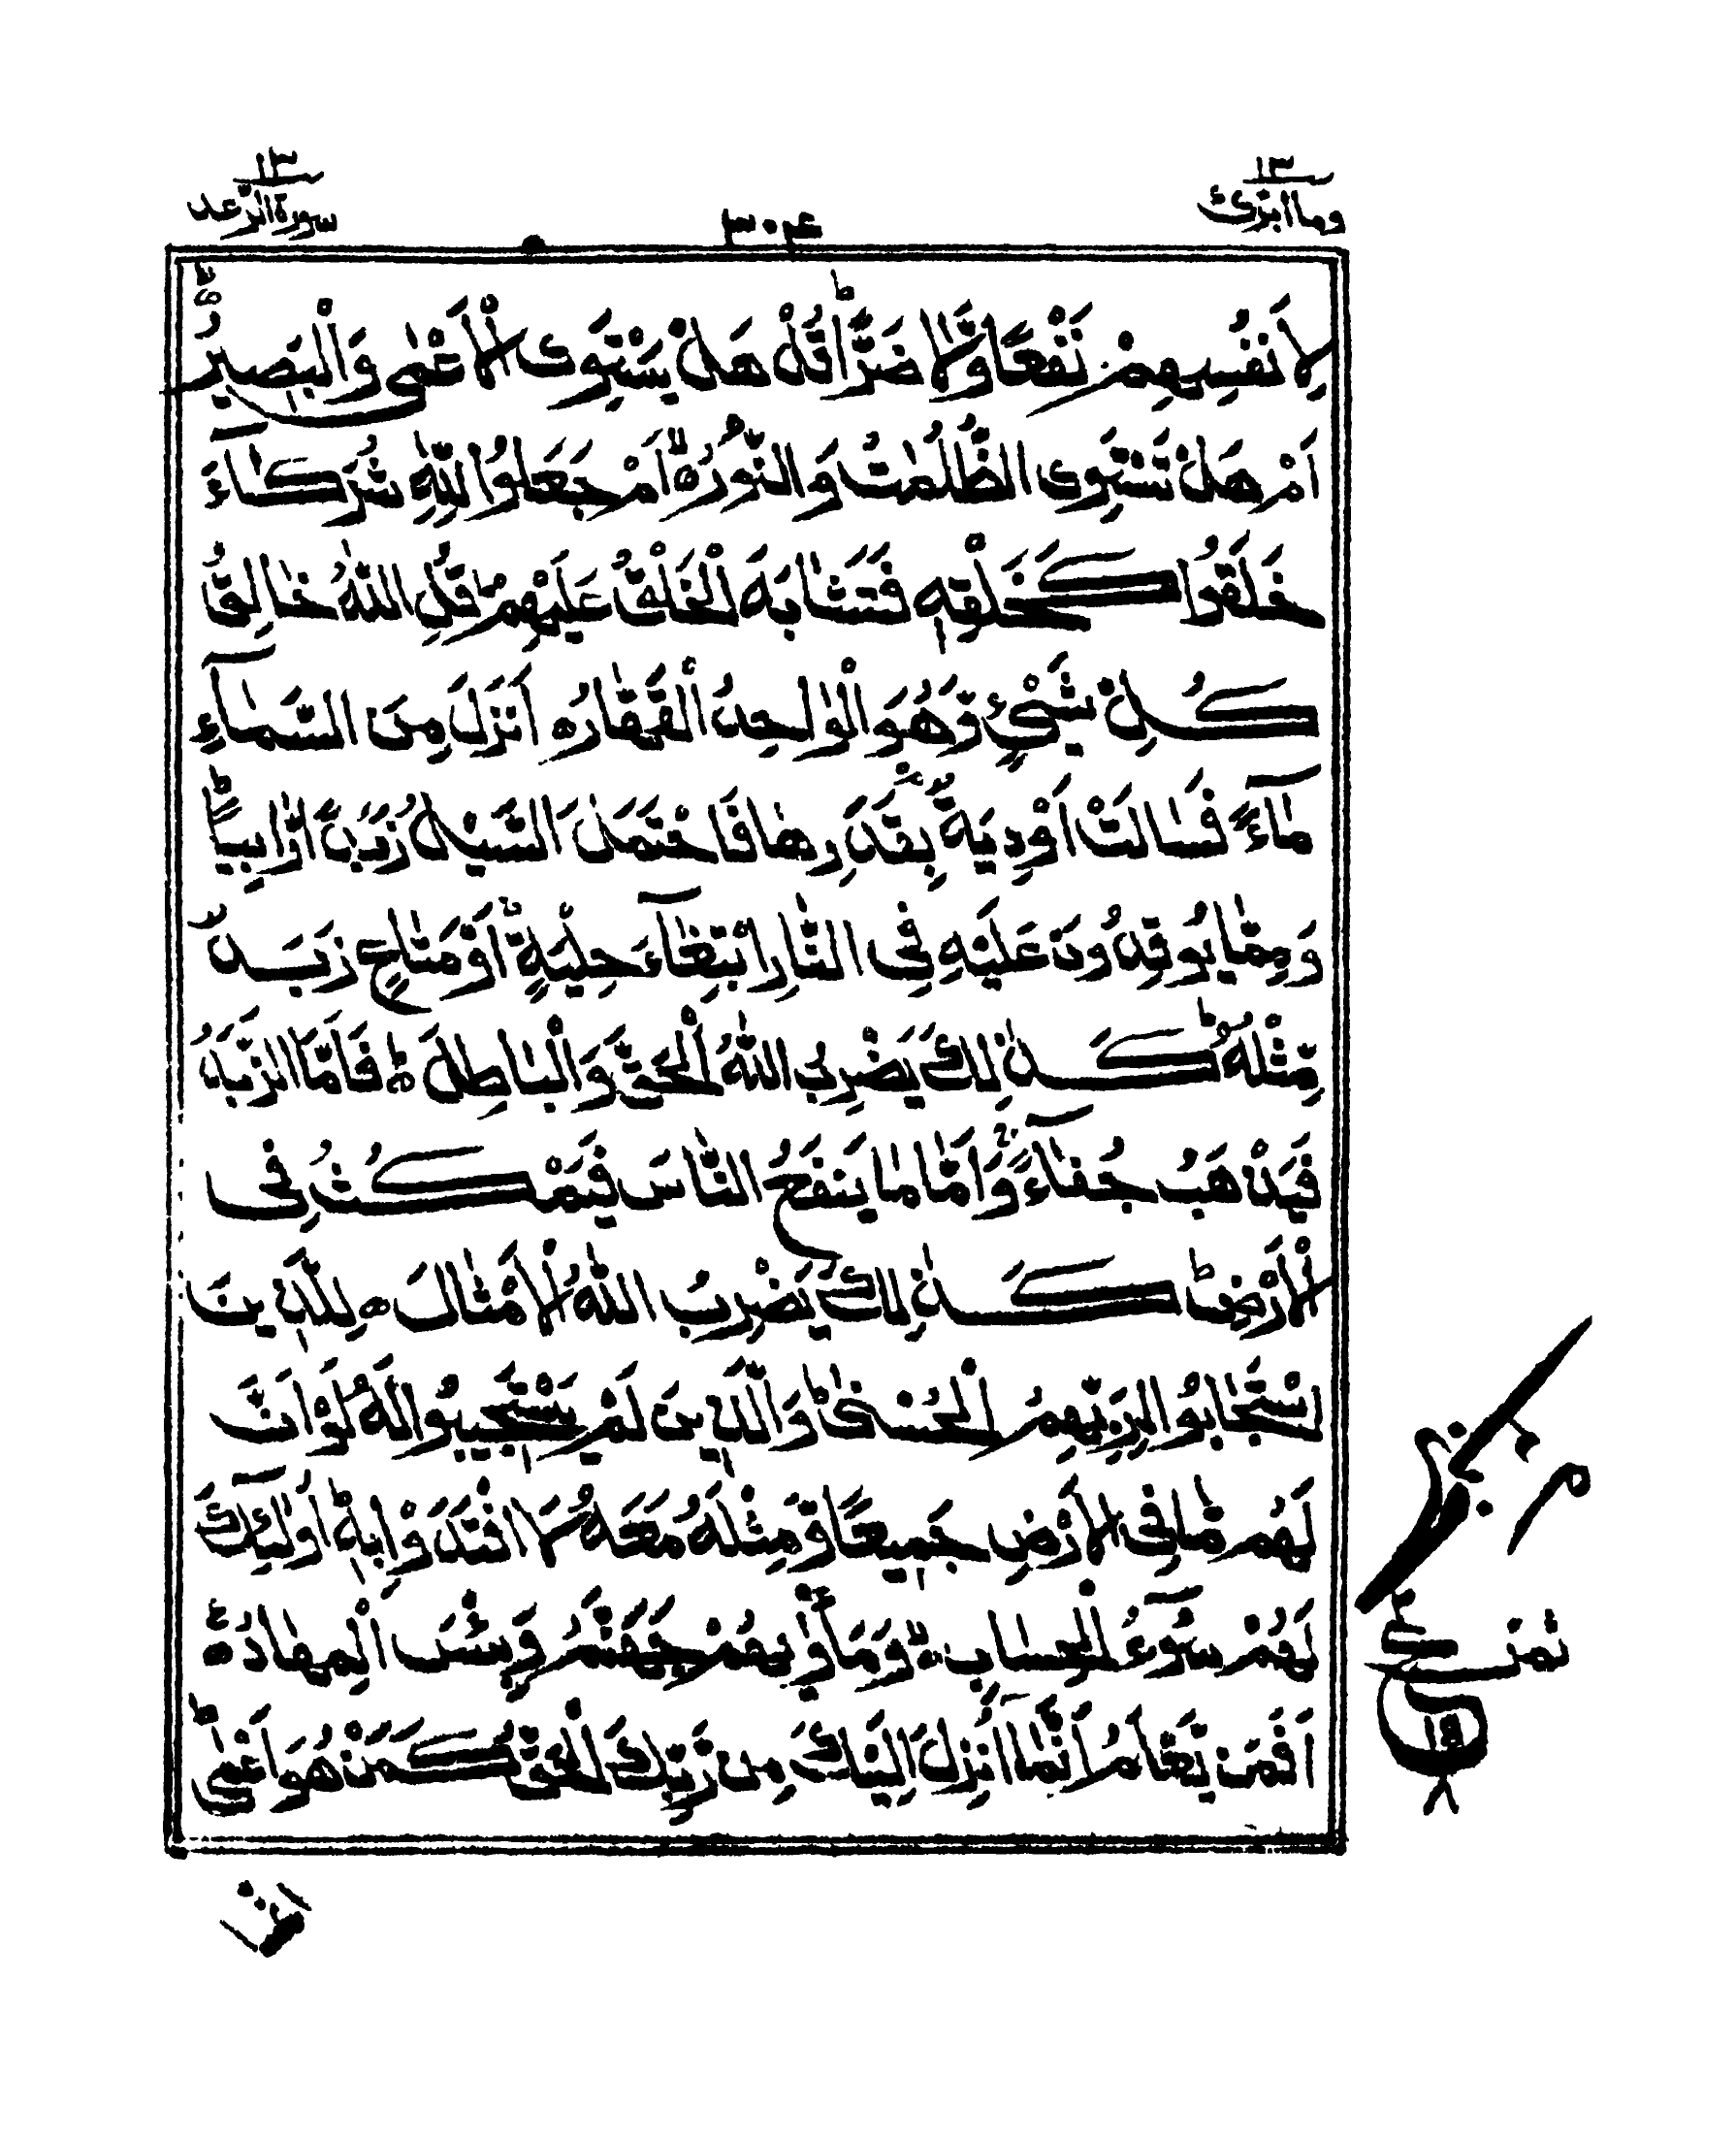 وما ابرئ ١٣
٣٠٤
سورة الرعد ١٣
لِاَنْفُسِهِمْ نَفْعًا وَّلَا ضَرًّا ؕ قُلْ هَلْ يَسْتَوِى الْاَعْمٰى وَالْبَصِيْرُ ۙ
اَمْ هَلْ تَسْتَوِى الظُّلُمٰتُ وَالنُّوْرُ ۚ اَمْ جَعَلُوْا لِلّٰهِ شُرَكَآءَ
خَلَقُوْا كَخَلْقِهٖ فَتَشَابَهَ الْخَلْقُ عَلَيْهِمْ ؕ قُلِ اللّٰهُ خَالِقُ
كُلِّ شَىْءٍ وَّهُوَ الْوٰحِدُ الْقَهَّارُ ۝ اَنْزَلَ مِنَ السَّمَآءِ
مَآءً فَسَالَتْ اَوْدِيَةٌۢ بِقَدَرِهَا فَاحْتَمَلَ السَّيْلُ زَبَدًا رَّابِيًا ؕ
وَمِمَّا يُوْقِدُوْنَ عَلَيْهِ فِى النَّارِ ابْتِغَآءَ حِلْيَةٍ اَوْ مَتَاعٍ زَبَدٌ
مِّثْلُهٗ ؕ كَذٰلِكَ يَضْرِبُ اللّٰهُ الْحَقَّ وَالْبَاطِلَ ؕ فَاَمَّا الزَّبَدُ
فَيَذْهَبُ جُفَآءً ۚ وَاَمَّا مَا يَنْفَعُ النَّاسَ فَيَمْكُثُ فِى
الْاَرْضِ ؕ كَذٰلِكَ يَضْرِبُ اللّٰهُ الْاَمْثَالَ ۝ لِلَّذِيْنَ
اسْتَجَابُوْا لِرَبِّهِمُ الْحُسْنٰى ؕ وَالَّذِيْنَ لَمْ يَسْتَجِيْبُوْا لَهٗ لَوْ اَنَّ
لَهُمْ مَّا فِى الْاَرْضِ جَمِيْعًا وَّمِثْلَهٗ مَعَهٗ لَافْتَدَوْا بِهٖ ؕ اُولٰٓئِكَ
لَهُمْ سُوْٓءُ الْحِسَابِ ۙ وَمَاْوٰىهُمْ جَهَنَّمُ ؕ وَبِئْسَ الْمِهَادُ ۝
اَفَمَنْ يَّعْلَمُ اَنَّمَاۤ اُنْزِلَ اِلَيْكَ مِنْ رَّبِّكَ الْحَقُّ كَمَنْ هُوَ اَعْمٰى ؕ